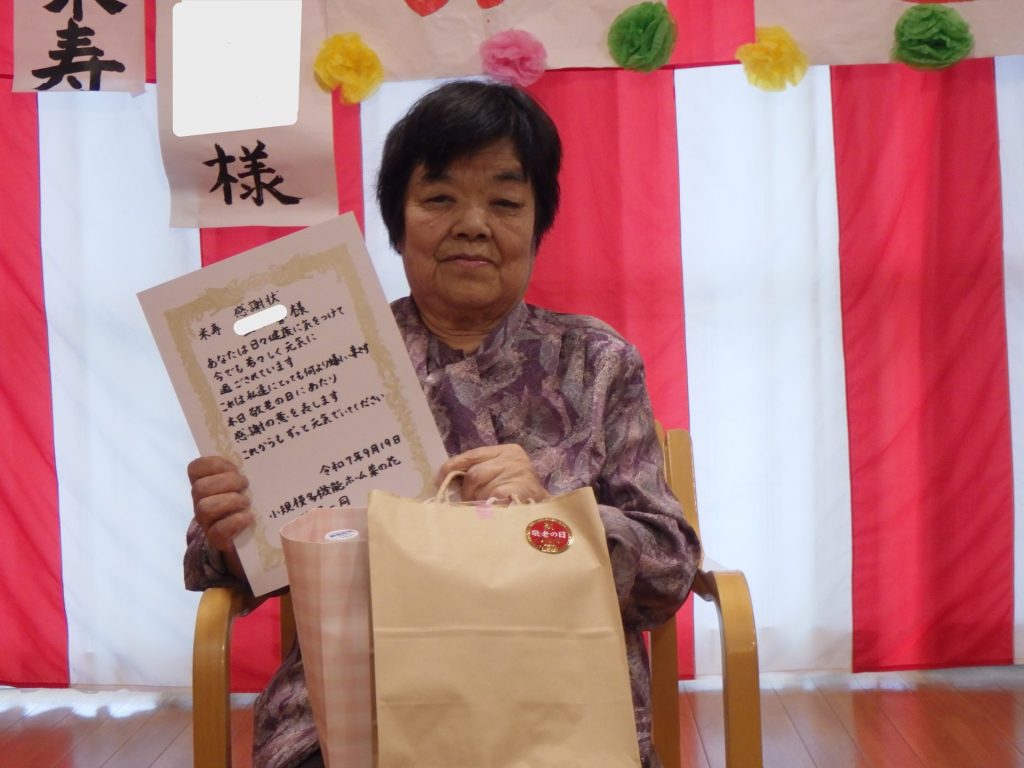 米寿
様
感謝状
米寿 様
あなたは日々健康に気をつけて
今でも若々しく元気に
過ごされています
これは私達にとっても何より嬉しい事です
本日敬老の日にあたり
感謝の意を表します
これからもずっと元気でいてください
令和7年9月19日
小規模多機能ホーム菜の花
一同
敬老の日